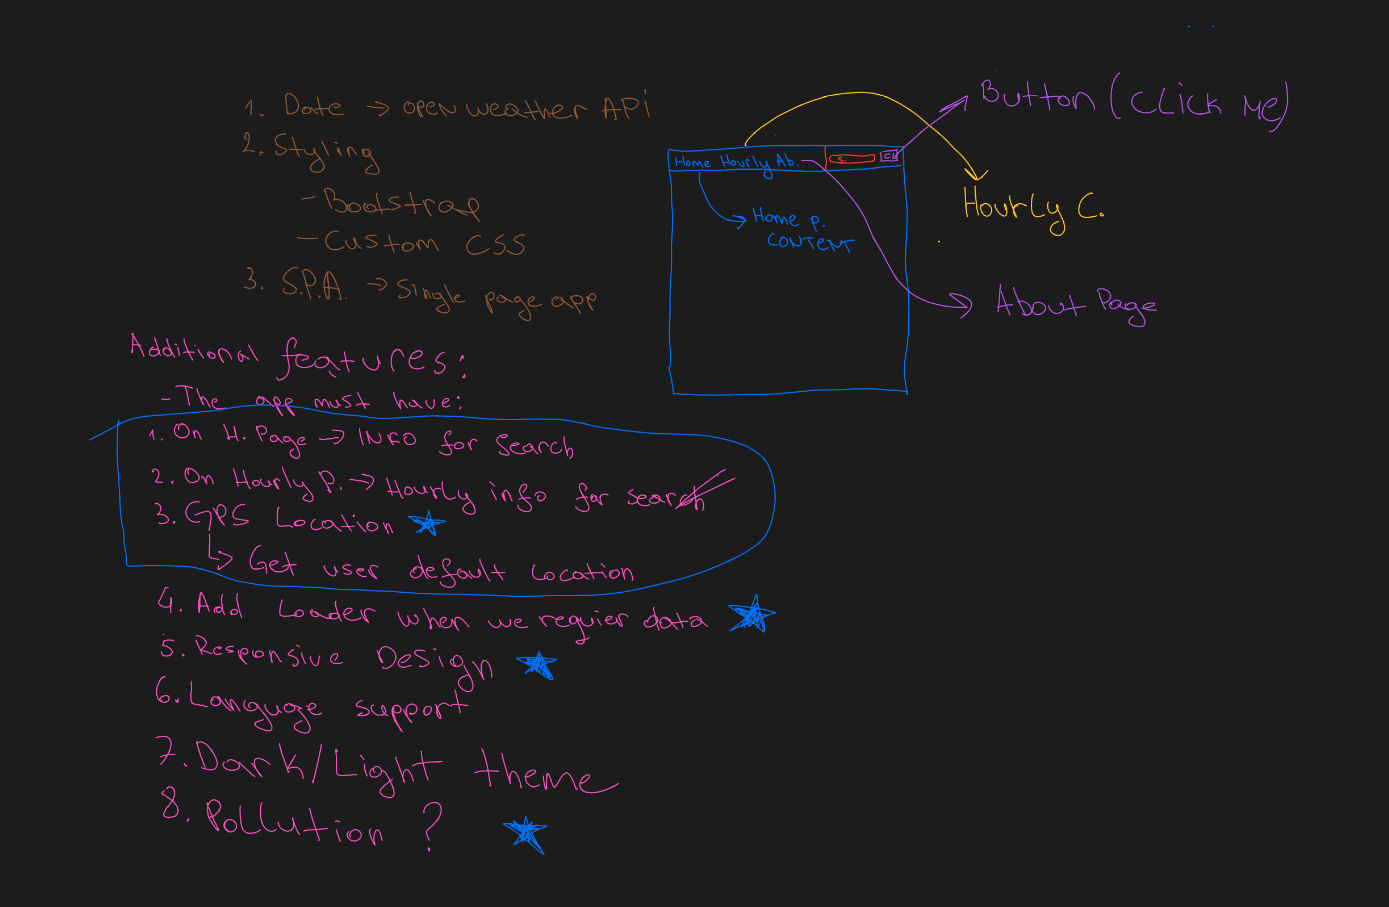 1. Date → open weather API
2. Styling
- Bootstrap
- Custom CSS
3. S.P.A. → single page app
Button (click me)
Home Hourly Ab. S.
Home p.
CONTENT
Hourly C.
About Page
Additional features:
- The app must have:
1. On H. Page → INFO for search
2. On Hourly p. → Hourly info for search
3. GPS Location
↳ Get user default location
4. Add Loader when we requier data
5. Responsive Design
6. Language support
7. Dark/Light theme
8. Pollution ?